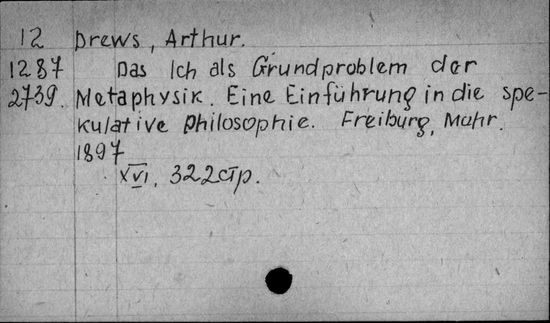 12 Drews, Arthur.
1287 Das Ich als Grundproblem der
2739. Metaphysik. Eine Einführung in die spe-
kulative Philosophie. Freiburg, Mohr.
1897
XVI, 322 стр.